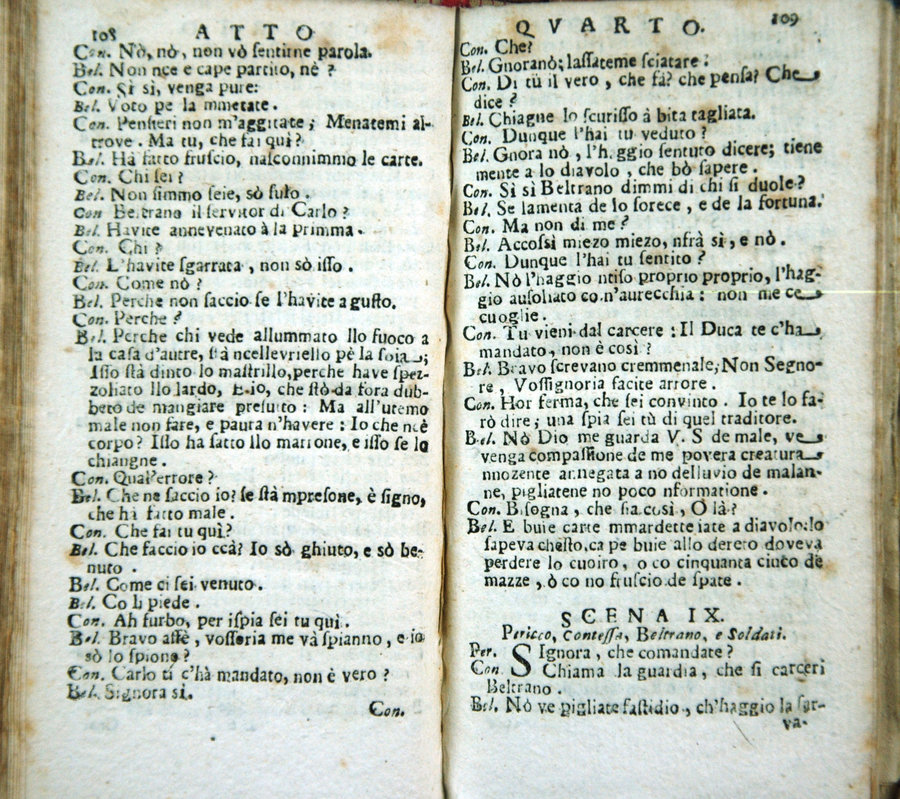 108 ATTO
Con. Nò, nò, non vò ſentirne parola.
Bel. Non nce e cape partito, nè ?
Con. Sì sì, venga pure:
Bel. Voto pe la mmetate.
Con. Penſieri non m'aggitate; Menatemi al-
trove. Ma tu, che fai quì?
Bel. Hà fatto fruſcio, naſconnimmio le carte.
Con. Chi ſei ?
Bel. Non ſimmo ſeie, sò ſulo.
Con Beltrano il ſervitor di Carlo ?
Bel. Havite annevenato à la primma.
Con. Chi ?
Bel. L'havite ſgarrata, non sò iſſo.
Con. Come nò ?
Bel. Perche non ſaccio ſe l'havite a guſto.
Con. Perche ?
Bel. Perche chi vede allummato llo fuoco a
la caſa d'autre, ſtà ncellevriello pè la ſoia;
Iſſo ſtà dinto lo maſtrillo, perche have ſpez-
zoliato llo lardo, E io, che ſtò da fora dub-
beto de mangiare preſutto: Ma all'utemo
male non fare, e paura n'havere: Io che nc'è
corpo? Iſſo ha fatto llo marrone, e iſſo ſe lo
chiangne.
Con. Qual'errore ?
Bel. Che ne ſaccio io? ſe ſtà mpreſone, è ſigno,
che hà fatto male.
Con. Che fai tu quì?
Bel. Che faccio io ccà? Io sò ghiuto, e sò be-
nuto.
Bel. Come ci ſei venuto.
Bel. Co li piede.
Con. Ah furbo, per iſpia ſei tu quì.
Bel. Bravo aſſè, voſſoria me và ſpianno, e io
sò lo ſpione?
Con. Carlo ti c'hà mandato, non è vero ?
Bel. Signora sì.
Con.
QVARTO. 109
Con. Che?
Bel. Gnoranò; laſſateme ſciatare:
Con. Di tù il vero, che fà? che penſa? Che
dice ?
Bel. Chiagne lo ſcuriſſo à bita tagliata.
Con. Dunque l'hai tu veduto ?
Bel. Gnora nò, l'haggio ſentuto dicere; tiene
mente a lo diavolo, che bò ſapere.
Con. Sì sì Beltrano dimmi di chi ſi duole ?
Bel. Se lamenta de lo ſorece, e de la fortuna.
Con. Ma non di me ?
Bel. Accoſsì miezo miezo, nfrà sì, e nò.
Con. Dunque l'hai tu ſentito ?
Bel. Nò l'haggio ntiſo proprio proprio, l'hag-
gio auſoliato co n'aurecchia: non me ce
cuoglie.
Con. Tu vieni dal carcere: Il Duca te c'ha
mandato, non è così ?
Bel. Bravo ſcrevano cremmenale; Non Segno-
re, Voſſignoria facite arrore.
Con. Hor ferma, che ſei convinto. Io te lo fa-
rò dire; una ſpia ſei tù di quel traditore.
Bel. Nò Dio me guarda V. S de male, ve
venga compaſſione de me povera creatura
nnozente annegata a no delluvio de malan-
ne, pigliatene no poco nformatione.
Con. Biſogna, che ſia così, O là ?
Bel. E buie carte mmardette iate a diavolo: lo
ſapeva cheſto, ca pe buie allo dereto doveva
perdere lo cuoiro, o co cinquanta cinco de
mazze, ò co no fruſcio de ſpate.
SCENA IX.
Pericco, Conteſſa, Beltrano, e Soldati.
Per. SIgnora, che comandate?
Con Chiama la guardia, che ſi carceri
Beltrano.
Bel. Nò ve pigliate faſtidio, ch'haggio la ſar-
va-